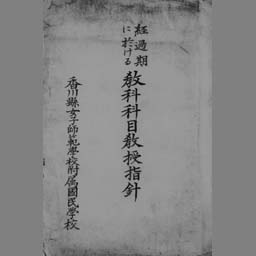 経過期
に於ける
教科科目教授指針
香川縣女子師範學校附属國民學校